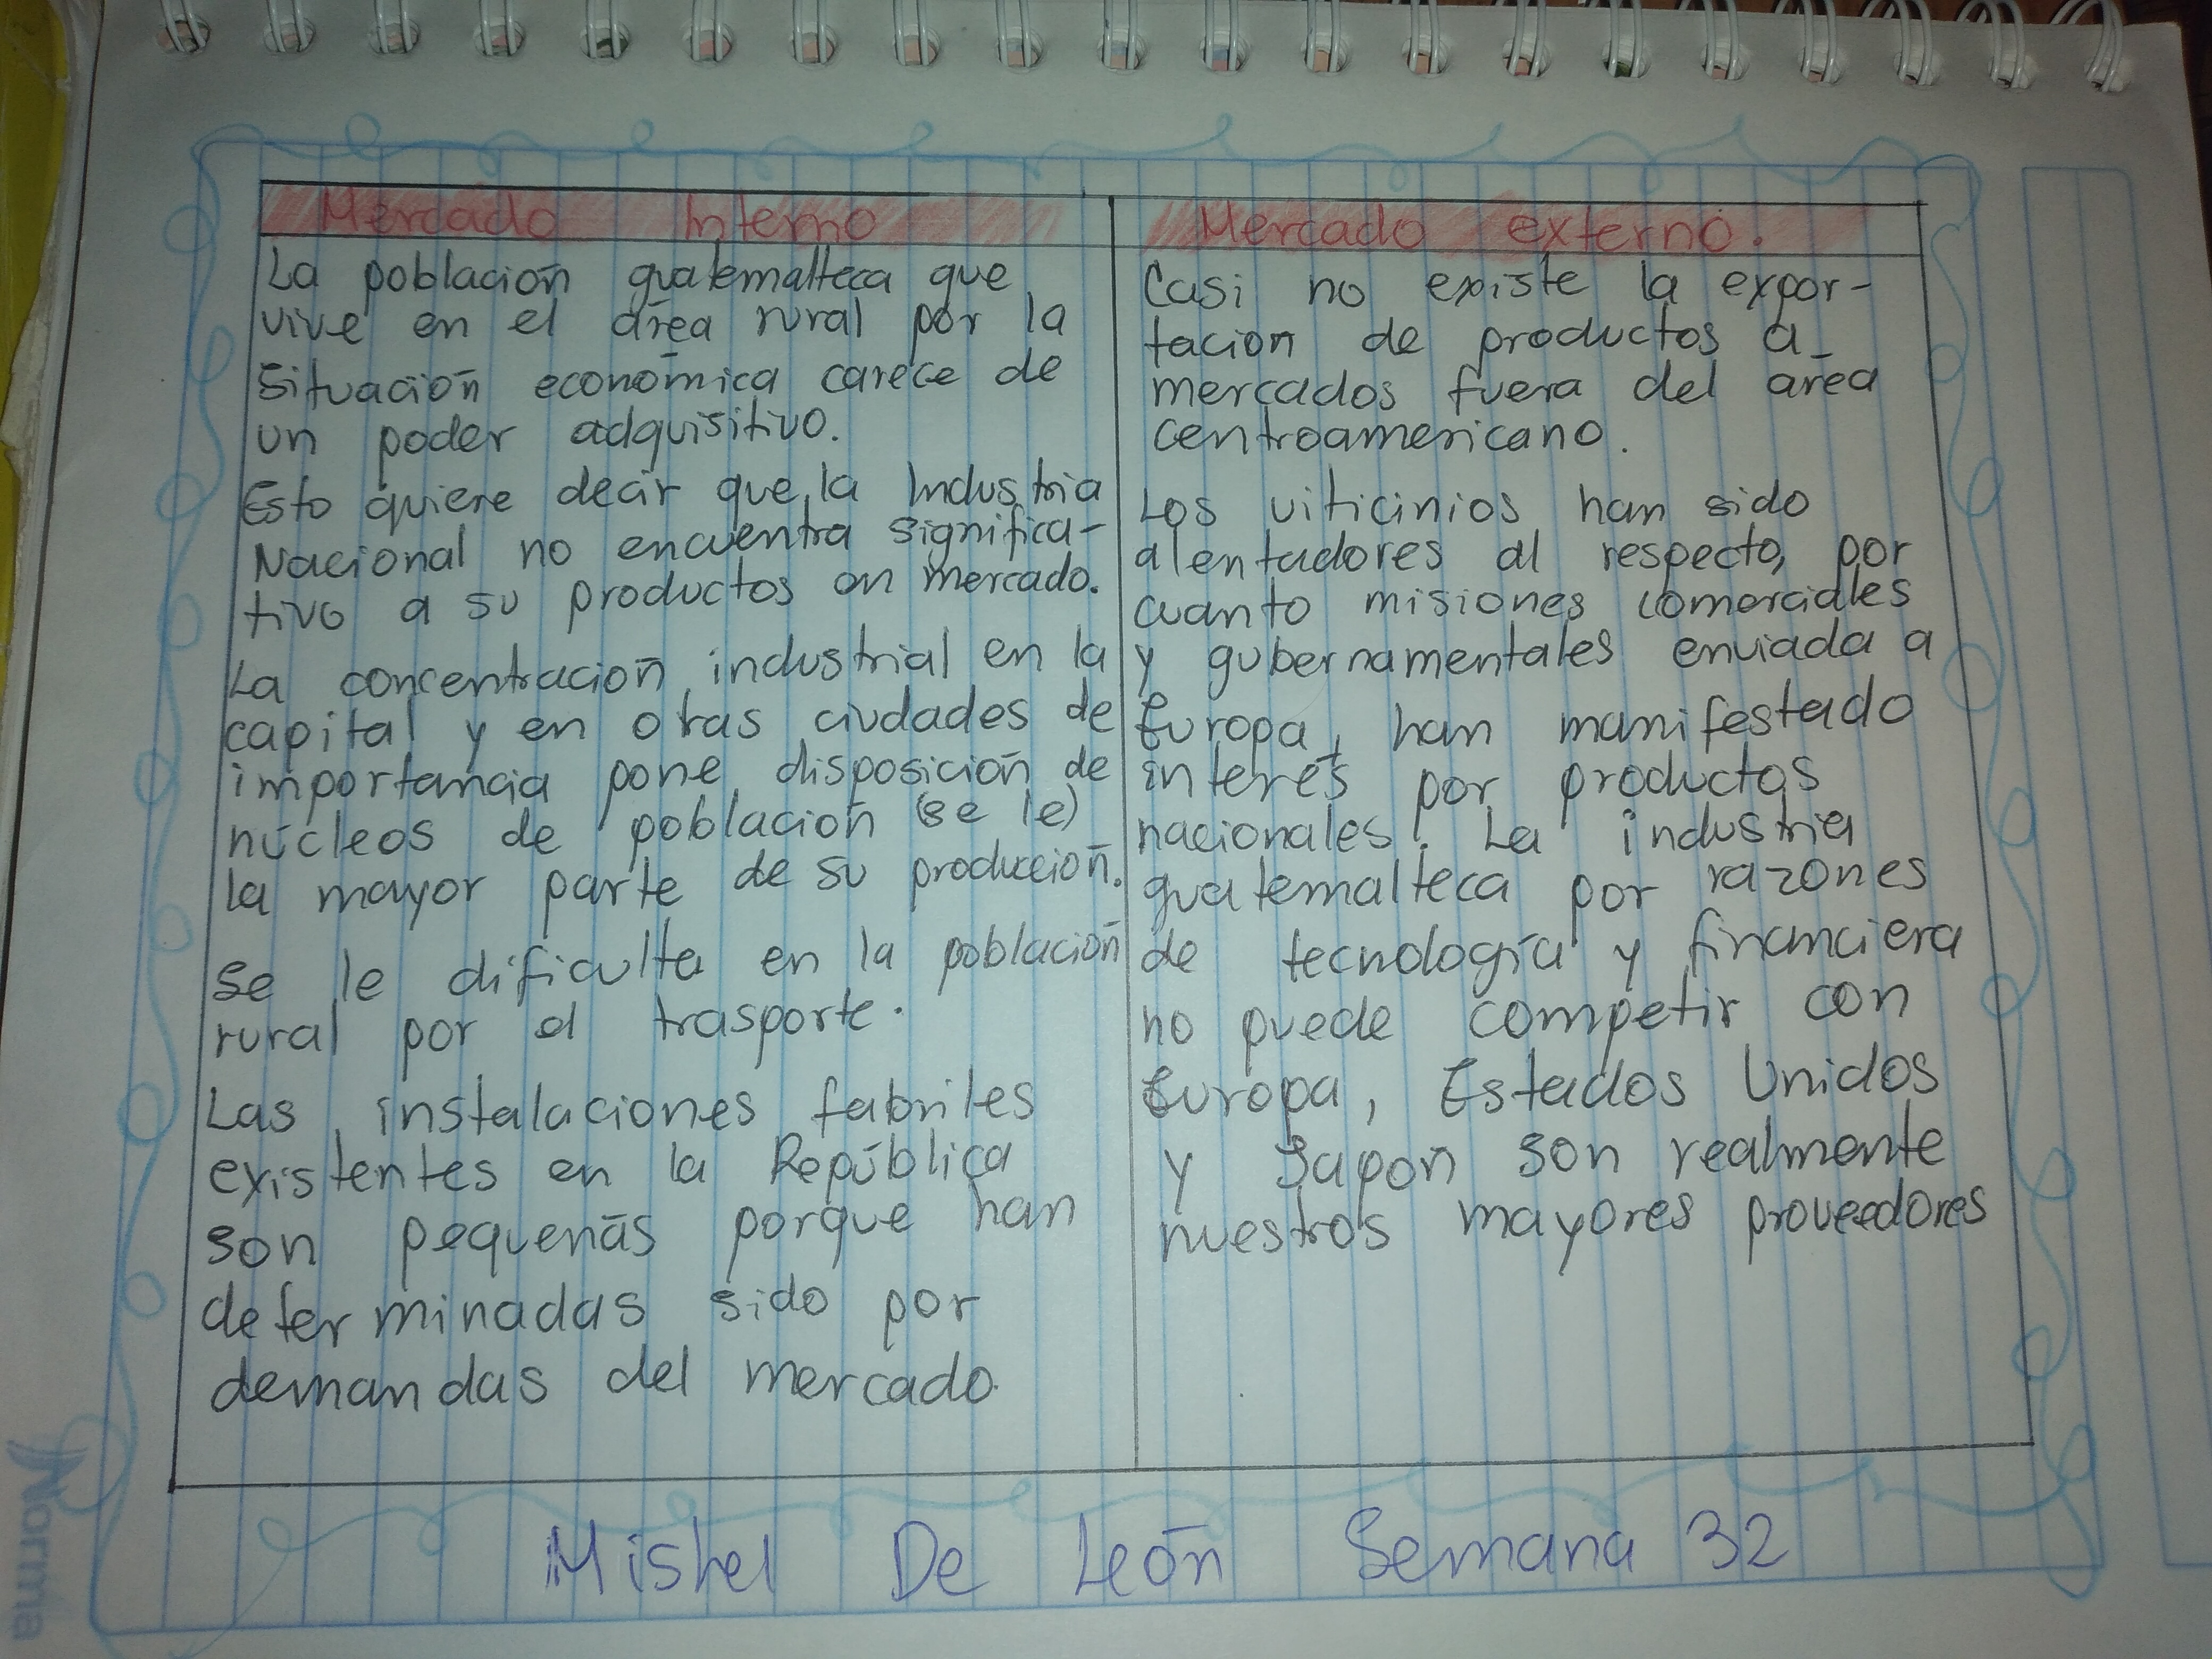 Mercado Interno
La población guatemalteca que
vive en el área rural por la
situación económica carece de
un poder adquisitivo.
Esto quiere decir que la Industria
Nacional no encuentra significa-
tivo a su productos en mercado.
La concentración industrial en la
capital y en otras ciudades de
importancia pone disposición de
núcleos de población (se le)
la mayor parte de su producción.
Se le dificulta en la población
rural por el trasporte.
Las instalaciones fabriles
existentes en la República
son pequeñas porque han
determinadas sido por
demandas del mercado.
Mercado externo.
Casi no existe la expor-
tacion de productos a
mercados fuera del area
centroamericano.
Los viticinios han sido
alentadores al respecto, por
cuanto misiones comerciales
y gubernamentales enviada a
Europa, han manifestado
interés por productos
nacionales. La industria
guatemalteca por razones
de tecnología y financiera
no puede competir con
Europa, Estados Unidos
y Japón son realmente
nuestros mayores proveedores
Mishel De León Semana 32
Norma